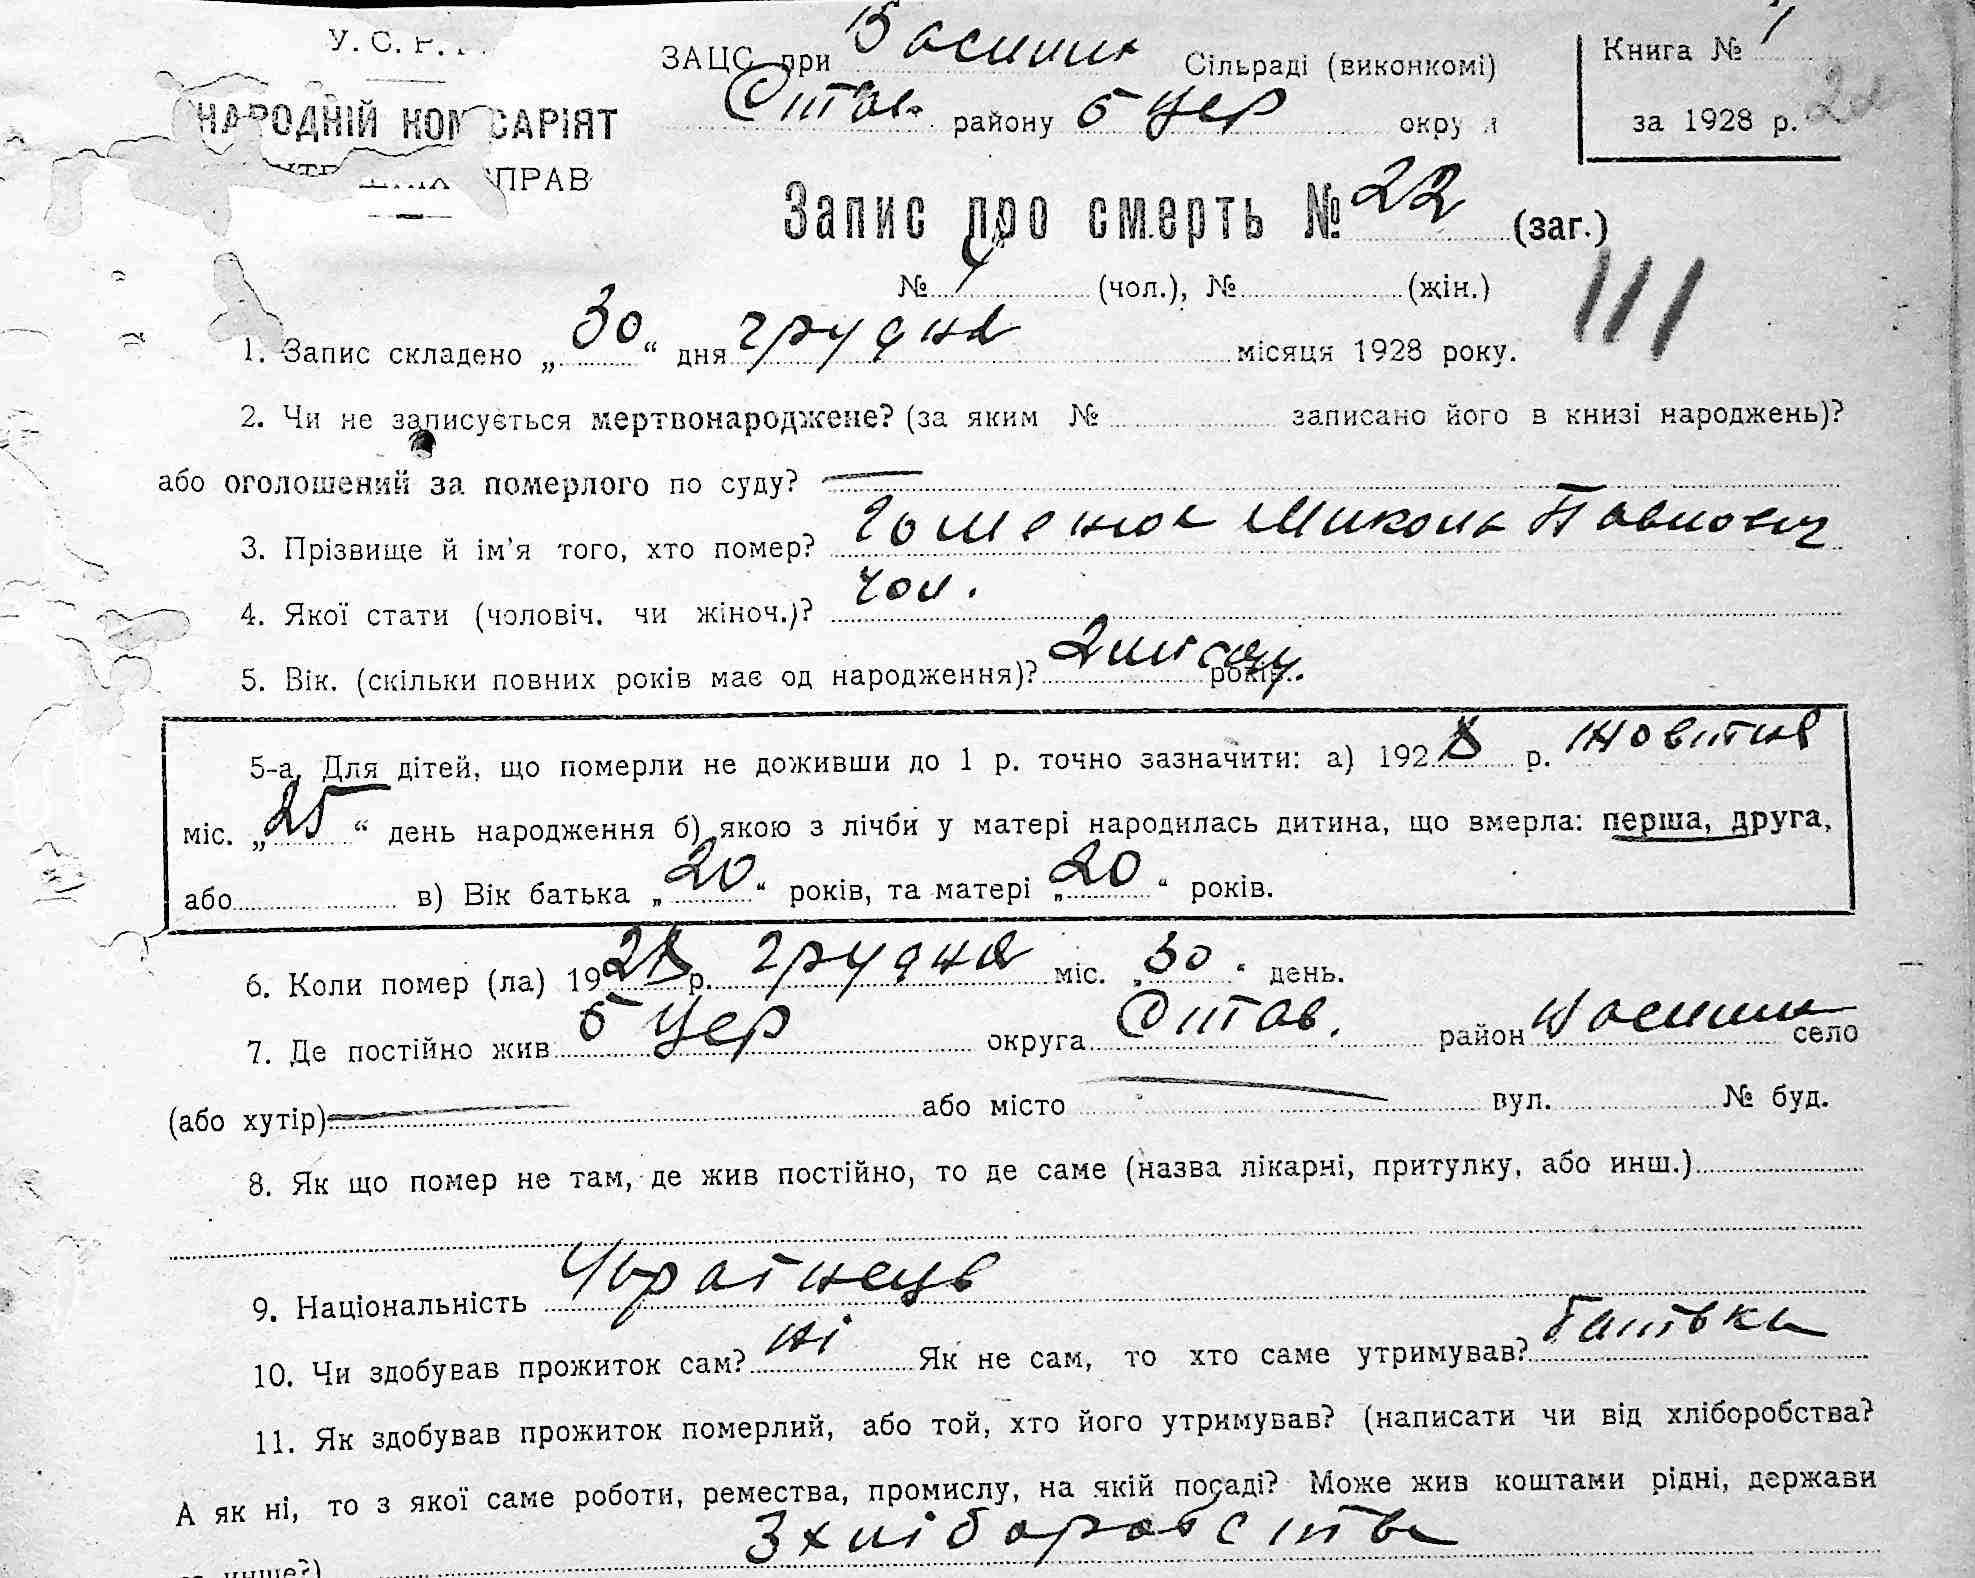 У. С. Р.
ЗАЦС при Сільраді (виконкомі)
Книга № 1
НАРОДНІЙ КОМІСАРІЯТ
Став. району Б Цер округи
за 1928 р.
СПРАВ
Запис про смерть № 22 (заг.)
№ (чол.), № (жін.)
111
1. Запис складено „30“ дня грудня місяця 1928 року.
2. Чи не записується мертвонароджене? (за яким № записано його в книзі народжень)?
або оголошений за померлого по суду? —
3. Прізвище й ім'я того, хто помер? Гоменюк Микола Павлович
4. Якої стати (чоловіч. чи жіноч.)? чол.
5. Вік. (скільки повних років має од народження)? 2 місяці років.
5-а. Для дітей, що померли не доживши до 1 р. точно зазначити: а) 1928 р. жовтня
міс. „25“ день народження б) якою з лічби у матері народилась дитина, що вмерла: перша, друга,
або в) Вік батька „20“ років, та матері „20“ років.
6. Коли помер (ла) 1928 р. грудня міс. „30“ день.
7. Де постійно жив Б Цер округа Став. район село
(або хутір) — або місто — вул. № буд.
8. Як що помер не там, де жив постійно, то де саме (назва лікарні, притулку, або инш.)
9. Національність Українець
10. Чи здобував прожиток сам? ні Як не сам, то хто саме утримував? батько
11. Як здобував прожиток померлий, або той, хто його утримував? (написати чи від хліборобства?
А як ні, то з якої саме роботи, ремества, промислу, на якій посаді? Може жив коштами рідні, держави
инше?) З хліборобства